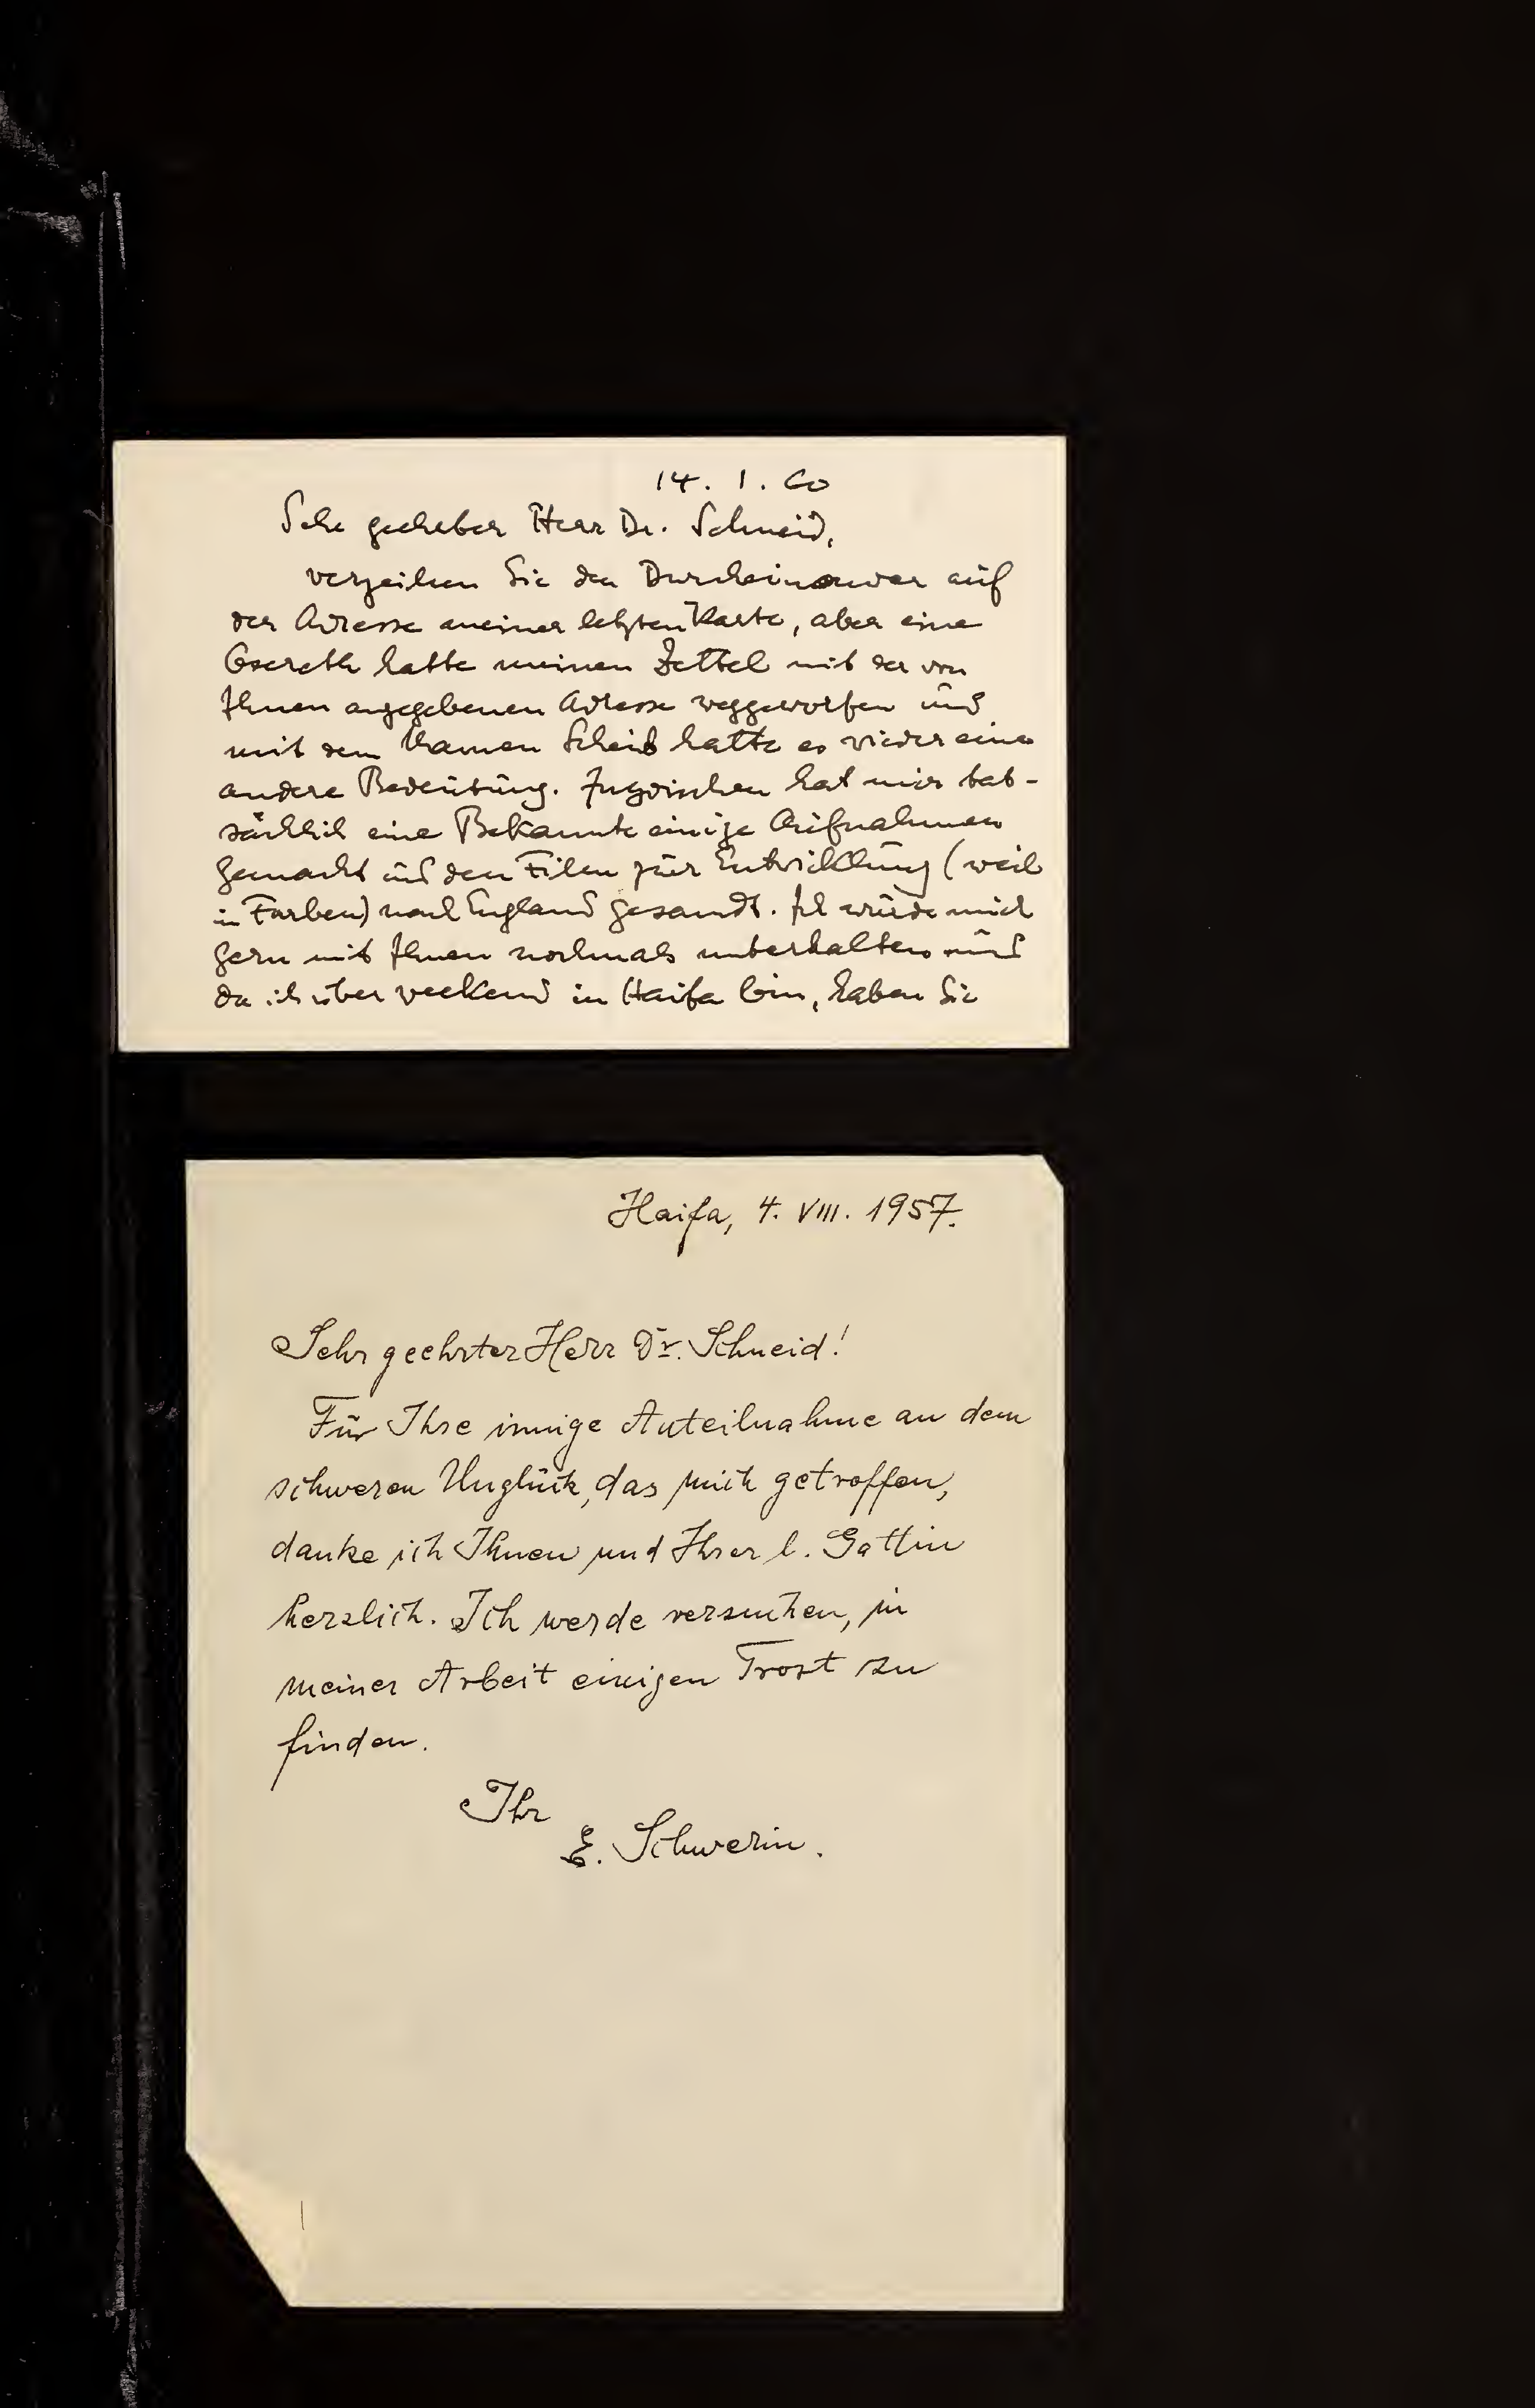 14. 1. 60
Sehr geehrter Herr Dr. Schneid,
verzeihen Sie den Durcheinander auf
der Adresse meiner letzten Karte, aber eine
Osereth hatte meinen Zettel mit der von
Ihnen angegebenen Adresse weggeworfen und
mit dem Namen Scheid hatte es wieder eine
andere Bedeutung. Inzwischen hat mir tat-
sächlich eine Bekannte einige Aufnahmen
gemacht und den Film zur Entwicklung (weil
in Farben) nach England gesandt. Ich würde mich
gern mit Ihnen nochmals unterhalten und
da ich über weekend in Haifa bin, haben Sie
Haifa, 4. VIII. 1957.
Sehr geehrter Herr Dr. Schneid!
Für Ihre innige Anteilnahme an dem
schweren Unglück, das mich getroffen,
danke ich Ihnen und Ihrer l. Gattin
herzlich. Ich werde versuchen, in
meiner Arbeit einigen Trost zu
finden.
Ihr
E. Schwerin.